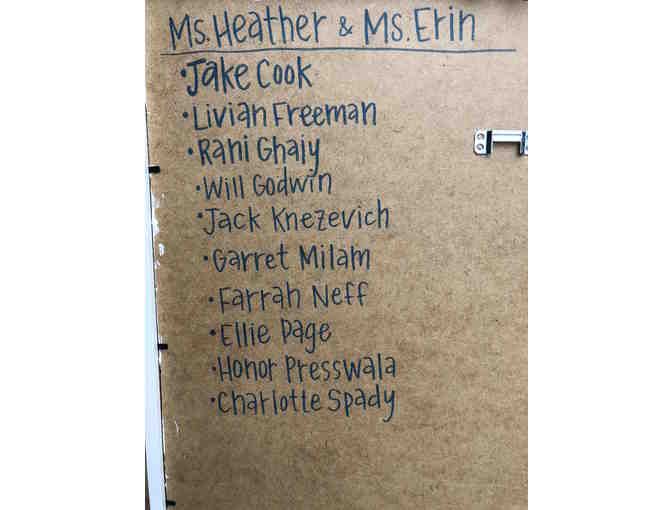 Ms. Heather & Ms. Erin
• Jake Cook
• Livian Freeman
• Rani Ghaiy
• Will Godwin
• Jack Knezevich
• Garret Milam
• Farrah Neff
• Ellie Page
• Honor Presswala
• Charlotte Spady